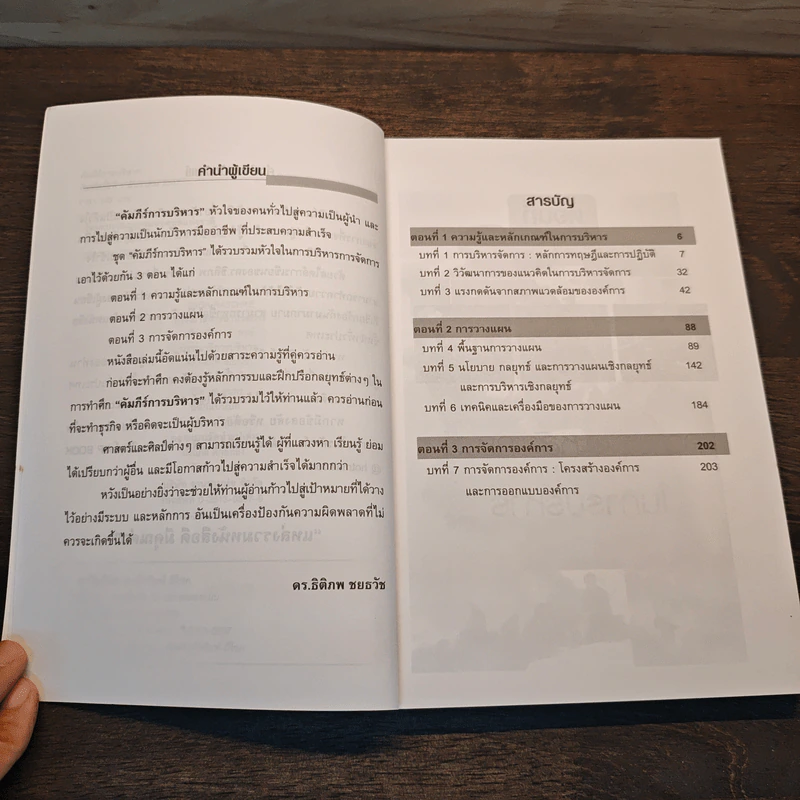 คำนำผู้เขียน
“คัมภีร์การบริหาร” หัวใจของคนทั่วไปสู่ความเป็นผู้นำ และ
การไปสู่ความเป็นนักบริหารมืออาชีพ ที่ประสบความสำเร็จ
ชุด “คัมภีร์การบริหาร” ได้รวบรวมหัวใจในการบริหารการจัดการ
เอาไว้ด้วยกัน 3 ตอน ได้แก่
ตอนที่ 1 ความรู้และหลักเกณฑ์ในการบริหาร
ตอนที่ 2 การวางแผน
ตอนที่ 3 การจัดการองค์การ
หนังสือเล่มนี้อัดแน่นไปด้วยสาระความรู้ที่คู่ควรอ่าน
ก่อนที่จะทำศึก คงต้องรู้หลักการรบและฝึกปรือกลยุทธ์ต่างๆ ใน
การทำศึก “คัมภีร์การบริหาร” ได้รวบรวมไว้ให้ท่านแล้ว ควรอ่านก่อน
ที่จะทำธุรกิจ หรือคิดจะเป็นผู้บริหาร
ศาสตร์และศิลป์ต่างๆ สามารถเรียนรู้ได้ ผู้ที่แสวงหา เรียนรู้ ย่อม
ได้เปรียบกว่าผู้อื่น และมีโอกาสก้าวไปสู่ความสำเร็จได้มากกว่า
หวังเป็นอย่างยิ่งว่าจะช่วยให้ท่านผู้อ่านก้าวไปสู่เป้าหมายที่ได้วาง
ไว้อย่างมีระบบ และหลักการ อันเป็นเครื่องป้องกันความผิดพลาดที่ไม่
ควรจะเกิดขึ้นได้
ดร.ธิติภพ ชยธวัช
สารบัญ
ตอนที่ 1 ความรู้และหลักเกณฑ์ในการบริหาร 6
บทที่ 1 การบริหารจัดการ : หลักการทฤษฎีและการปฏิบัติ 7
บทที่ 2 วิวัฒนาการของแนวคิดในการบริหารจัดการ 32
บทที่ 3 แรงกดดันจากสภาพแวดล้อมขององค์การ 42
ตอนที่ 2 การวางแผน 88
บทที่ 4 พื้นฐานการวางแผน 89
บทที่ 5 นโยบาย กลยุทธ์ และการวางแผนเชิงกลยุทธ์ 142
และการบริหารเชิงกลยุทธ์
บทที่ 6 เทคนิคและเครื่องมือของการวางแผน 184
ตอนที่ 3 การจัดการองค์การ 202
บทที่ 7 การจัดการองค์การ : โครงสร้างองค์การ 203
และการออกแบบองค์การ